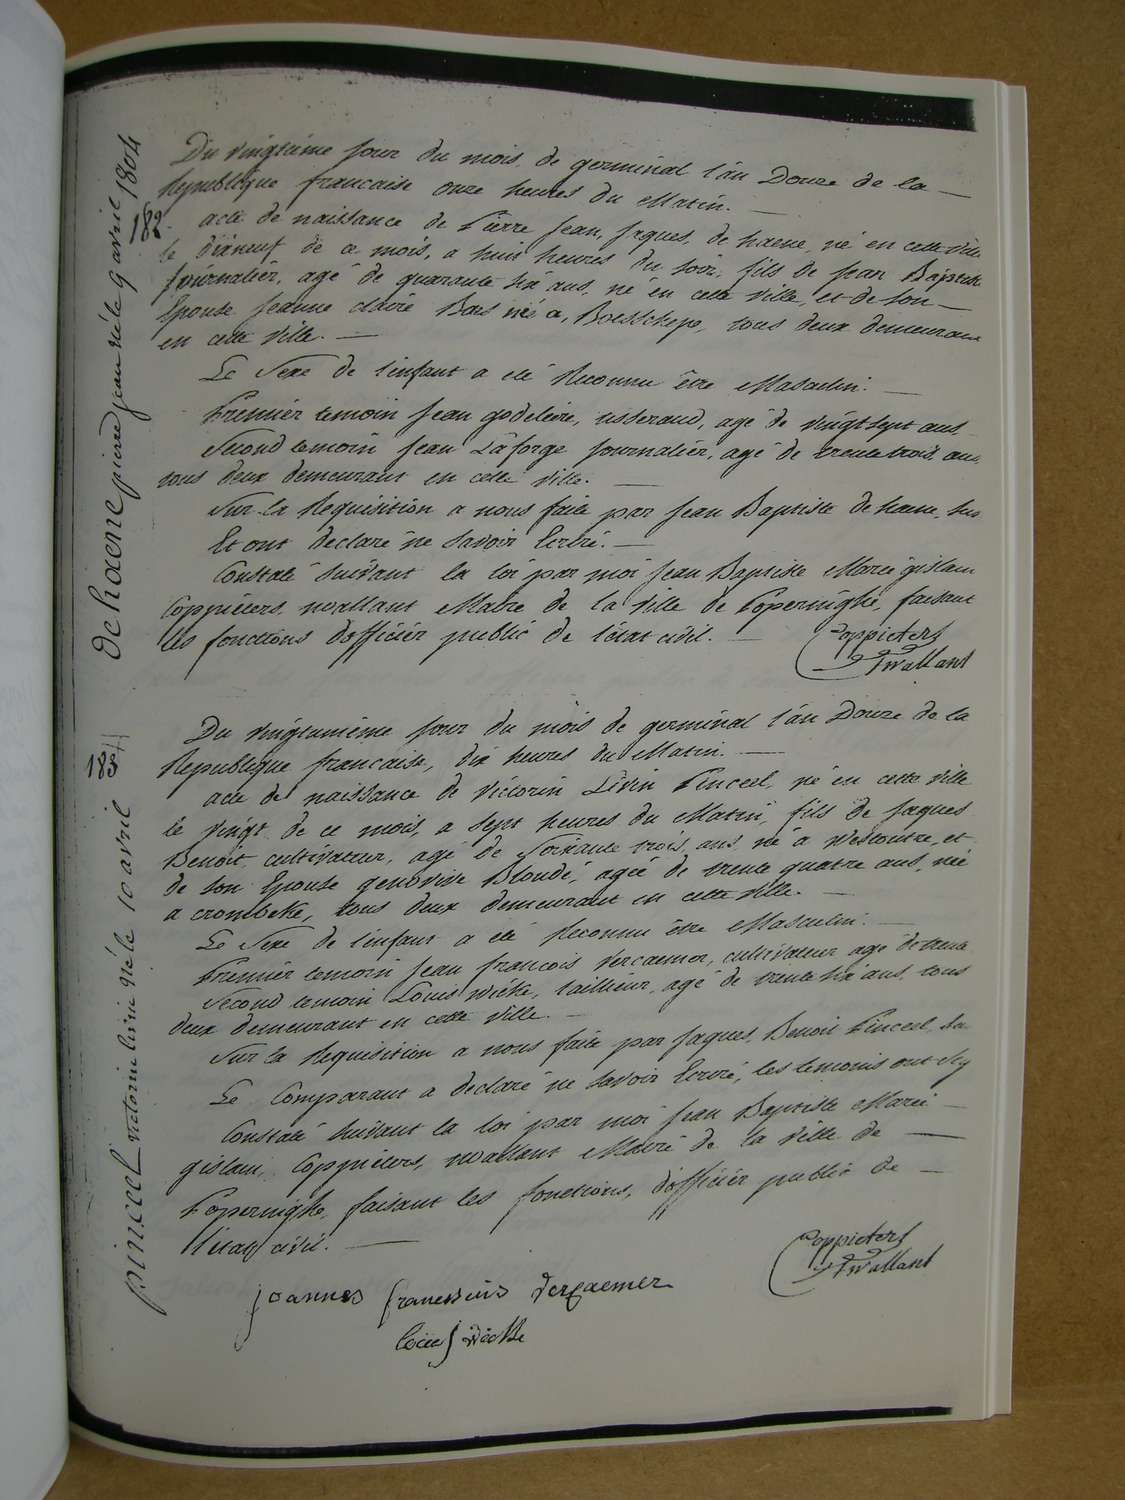 Du vingtième jour du mois de germinal l'an Douze de la
République francaise onze heures du Matin.
182. acte de naissance de Pierre Jean, Jaques, de haene, né en cette ville
le dixneuf de ce mois, a huit heures du soir, fils de Jean Baptiste
Journalier, agé de quarante six ans, né en cette ville, et de son
Epouse Jeanne claire Bas née a, Boesschepe, tous deux demeurant
en cette ville.
Le Sexe de l'infant a eté Reconnu être Masculin.
Premier temoin Jean godeleive, tisserand, agé de vingt sept ans
Second temoin Jean Laforge journalier, agé de trente trois ans
tous deux demeurant en cette ville.
Sur la Requisition a nous faite par Jean Baptiste de haene,
Et ont declaré ne savoir Ecrire.
Constaté suivant la loi par moi Jean Baptiste Marie gislain
Coppieters, wallant Maire de la ville de Poperinghe, faisant
les fonctions d'officier public de l'état civil.
Coppieters
Twallant
de haene pierre jean né le 9 avril 1804
Du vingtunième jour du mois de germinal l'an Douze de la
Republique francaise, dix heures du Matin.
183
acte de naissance de Victorin Livin Pinceel, né en cette ville
le vingt de ce mois, a sept heures du Matin, fils de Jaques
Benoit cultivateur, agé de Soixante trois, ans né a Westoutre, et
de son Epouse genovive Blondé, agée de trente quatre ans, née
a crombeke, tous deux demeurant en cette ville.
Le Sexe de l'infant a eté Reconnu être Masculin.
Premier temoin Jean francois Vercaemer, cultivateur agé de trente
Second temoin Louis wicke, tailleur, agé de trente six ans, tous
deux demeurant en cette ville.
Sur la Requisition a nous faite par Jaques, Benoit Pinceel,
Le Comparant a declaré ne savoir Ecrire, les temoins ont
Constaté suivant la loi par moi Jean Baptiste Marie
gislain, Coppieters, wallant Maire de la ville de
Poperinghe, faisant les fonctions, d'officier public de
l'état civil.
Coppieters
Twallant
joannes franciscus Vercaemer
pinceel victorin livin né le 10 avril